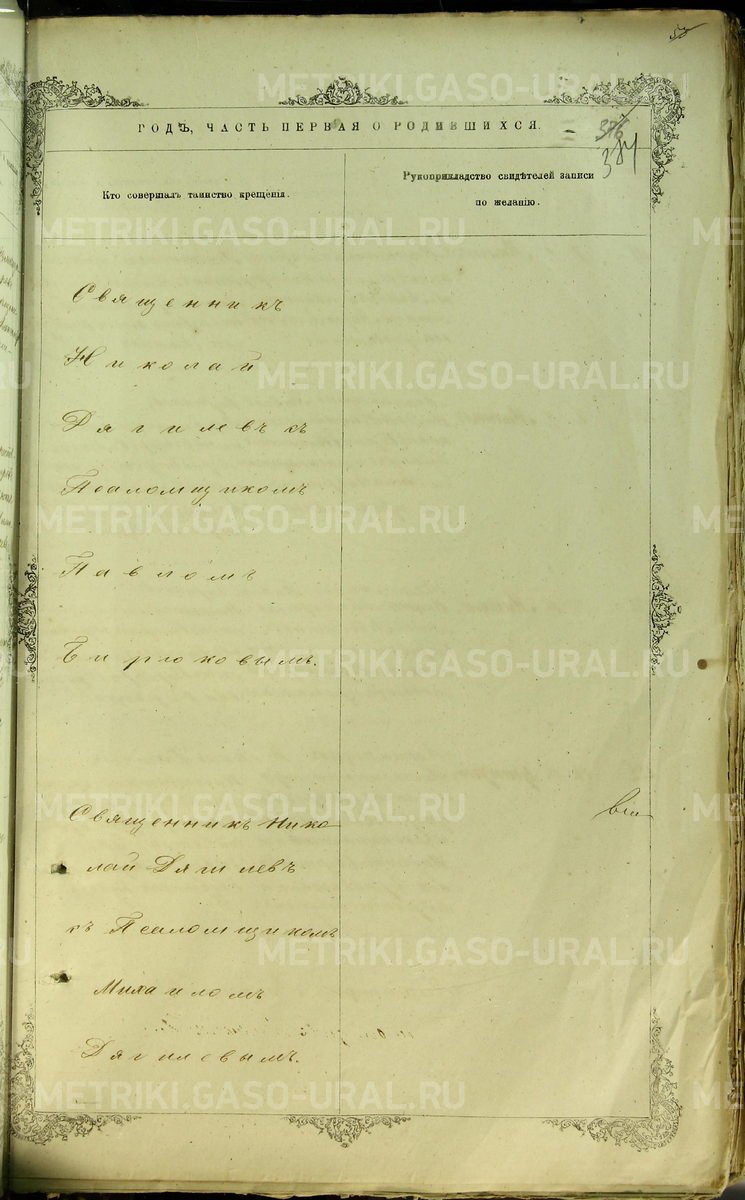 53
METRIKI.GASO-URAL.RU
ГОДЪ, ЧАСТЬ ПЕРВАЯ О РОДИВШИХСЯ.
376
384
Кто совершалъ таинство крещенія.
Рукоприкладство свидѣтелей записи
по желанію.
Священникъ
Николай
Дягилевъ съ
Псаломщикомъ
Павломъ
Бирюковымъ.
Священникъ Нико
лай Дягилевъ
съ Псаломщикомъ
Михаиломъ
Дягилевымъ.